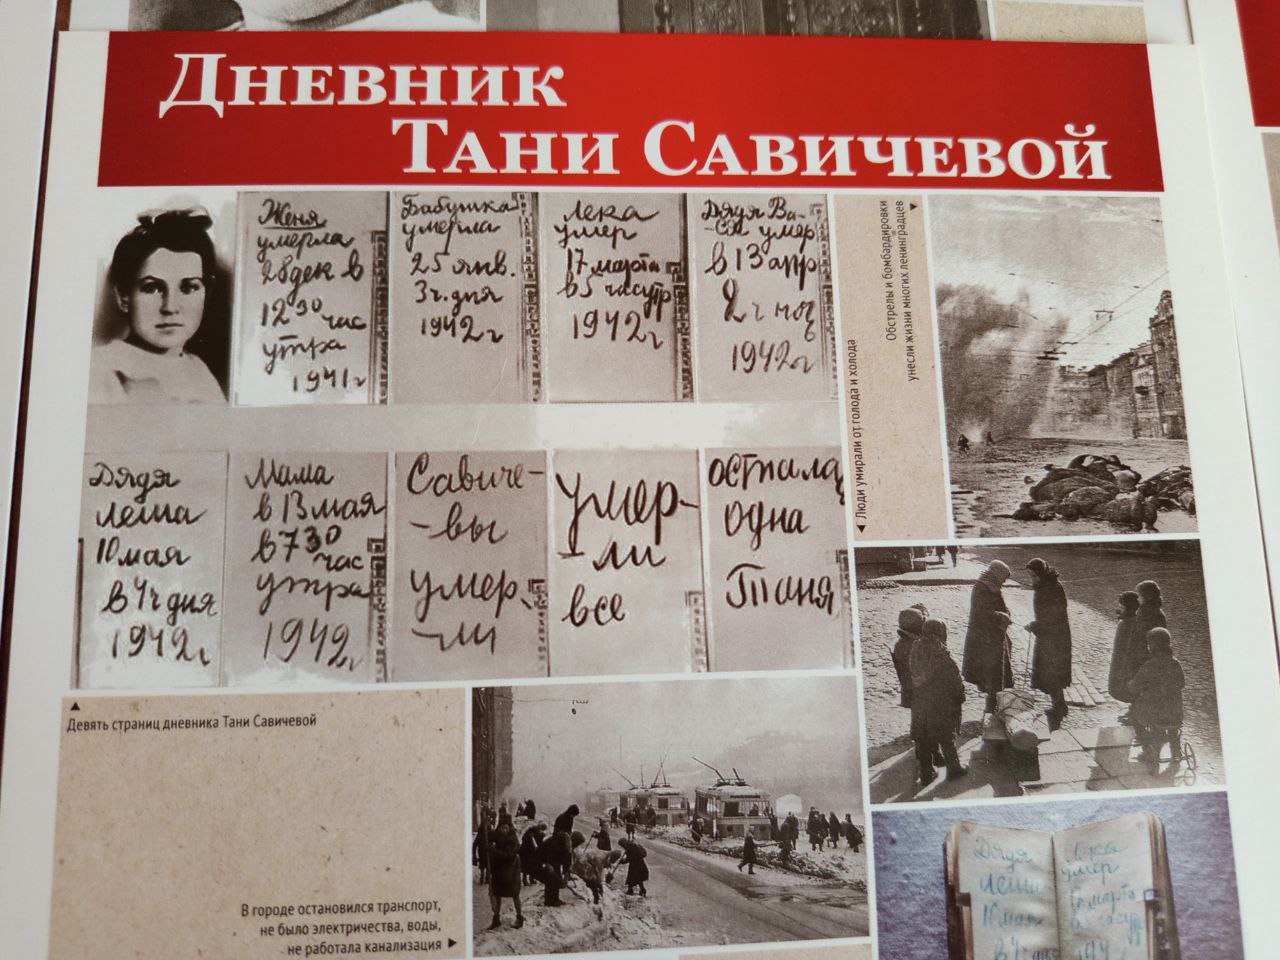 Дневник
Тани Савичевой
Женя
умерла
28 дек в
12 30 час
утра
1941 г
Бабушка
умерла
25 янв.
3 ч. дня
1942 г
Лека
умер
17 марта
в 5 час утр
1942 г
Дядя Ва-
ся умер
в 13 апр
2 ч ноч
1942 г
Дядя
Леша
10 мая
в 4 ч дня
1942 г
Мама
в 13 мая
в 7 30
час
утра
1942 г
Савиче-
-вы
умер
-ли
умер-
-ли
все
осталась
одна
Таня
▲
Девять страниц дневника Тани Савичевой
Обстрелы и бомбардировки ▶
унесли жизни многих ленинградцев
◀ Люди умирали от голода и холода
В городе остановился транспорт,
не было электричества, воды,
не работала канализация ▶
Дядя
Леша
10 мая
в 4 ч дня
Лека
умер
17 марта
в 5 час утр
194